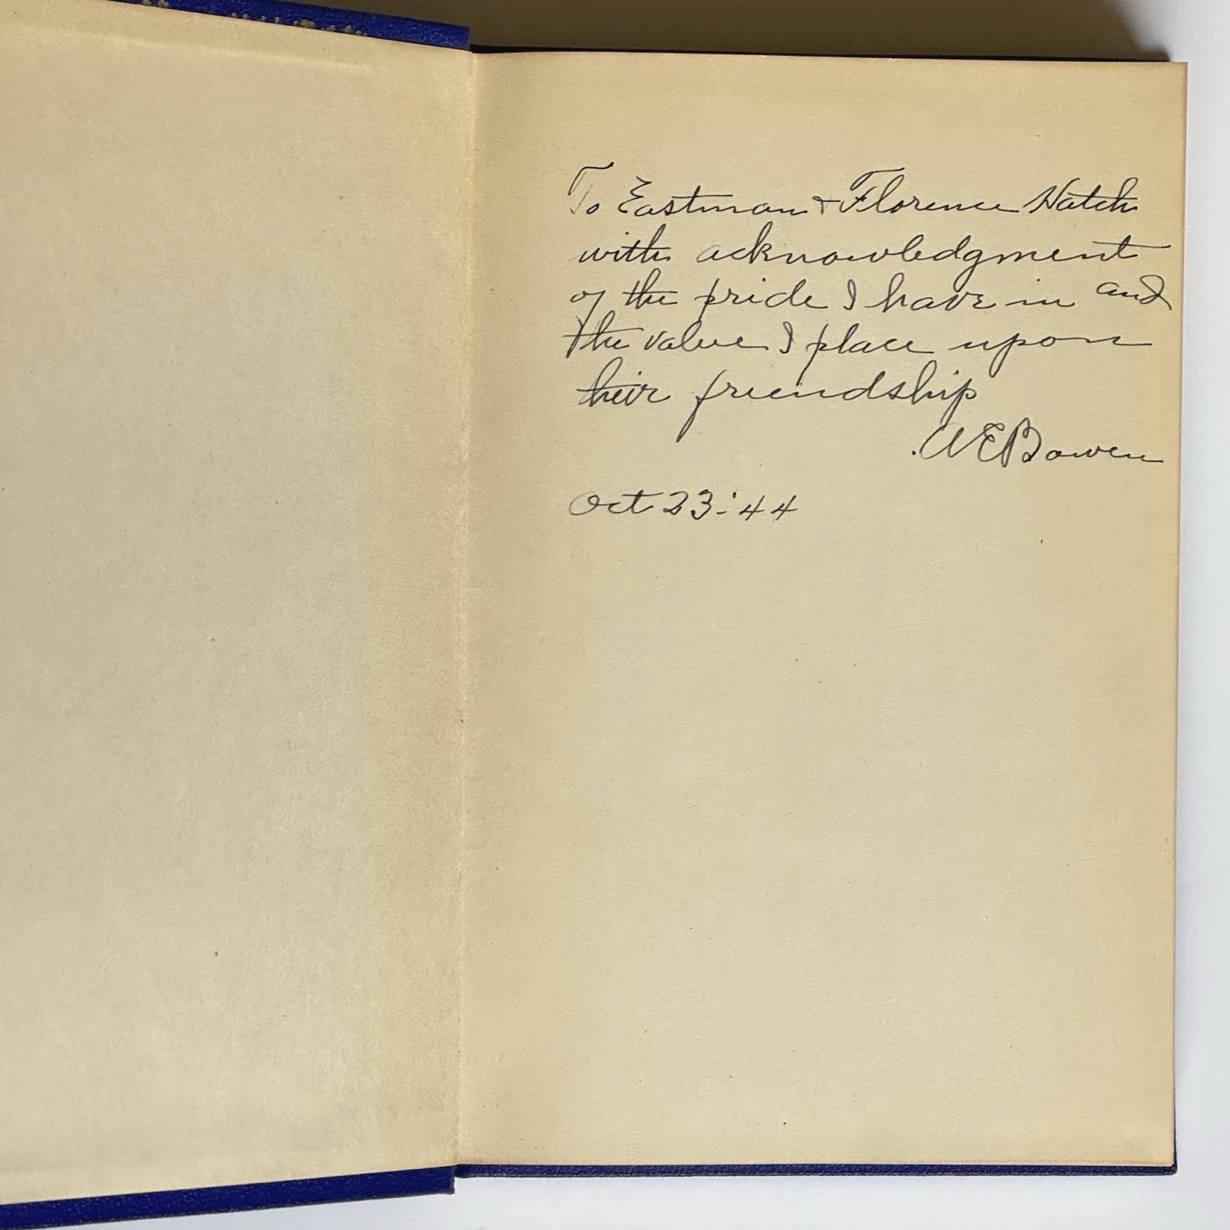 To Eastman & Florence Hatch
with acknowledgment
of the pride I have in and
the value I place upon
their friendship
A E Bowen
Oct 23 '44